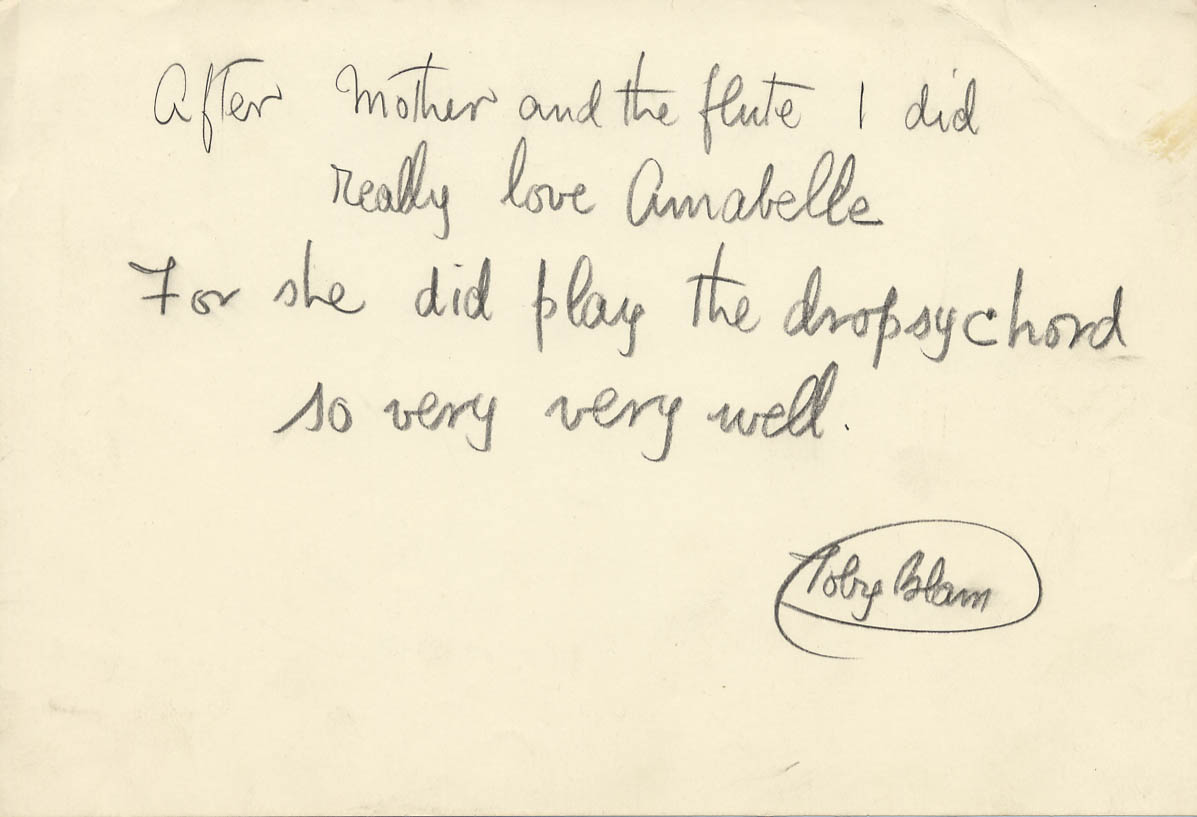 After Mother and the flute I did
really love Annabelle
For she did play the dropsychord
so very very well.
Toby Blam